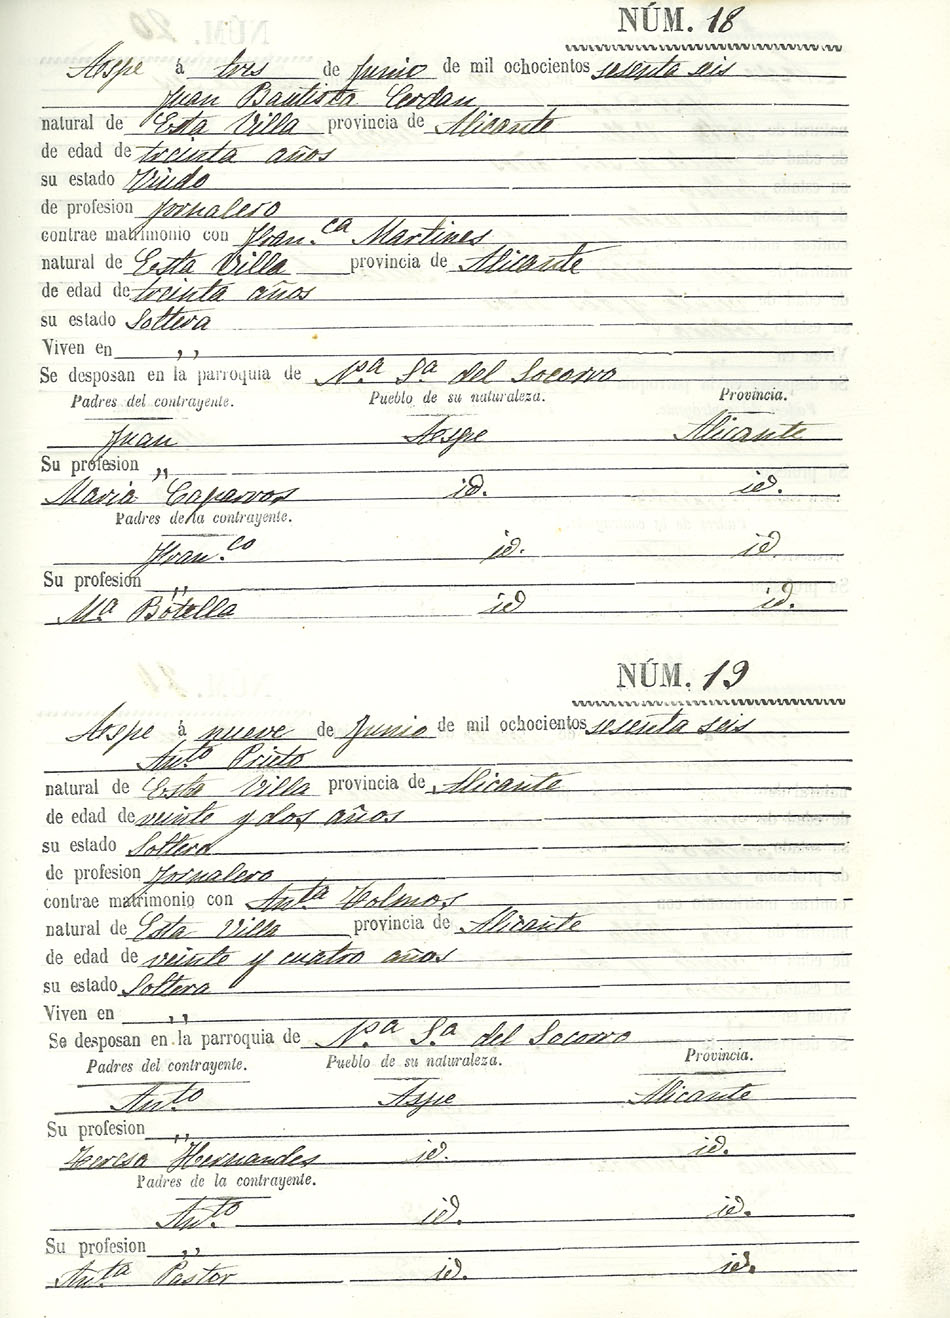 NÚM. 18
Aspe á tres de Junio de mil ochocientos sesenta seis
Juan Bautista Cerdan
natural de Esta Villa provincia de Alicante
de edad de treinta años
su estado Viudo
de profesion Jornalero
contrae matrimonio con Fran.ca Martines
natural de Esta Villa provincia de Alicante
de edad de treinta años
su estado Soltera
Viven en ,,
Se desposan en la parroquia de N.sa S.a del Socorro
Padres del contrayente. Pueblo de su naturaleza. Provincia.
Juan Aspe Alicante
Su profesion ,,
Maria Caparros id. id.
Padres de la contrayente.
Fran.co id. id.
Su profesion ,,
M.a Botella id id.
NÚM. 19
Aspe á nueve de Junio de mil ochocientos sesenta seis
Ant.to Prieto
natural de Esta Villa provincia de Alicante
de edad de veinte y dos años
su estado Soltero
de profesion Jornalero
contrae matrimonio con Ant.ta Holmos
natural de Esta Villa provincia de Alicante
de edad de veinte y cuatro años
su estado Soltera
Viven en ,,
Se desposan en la parroquia de N.sa S.a del Socorro
Padres del contrayente. Pueblo de su naturaleza. Provincia.
Ant.to Aspe Alicante
Su profesion ,,
Teresa Hernandes id. id.
Padres de la contrayente.
Ant.to id. id.
Su profesion ,,
Ant.ta Pastor id. id.